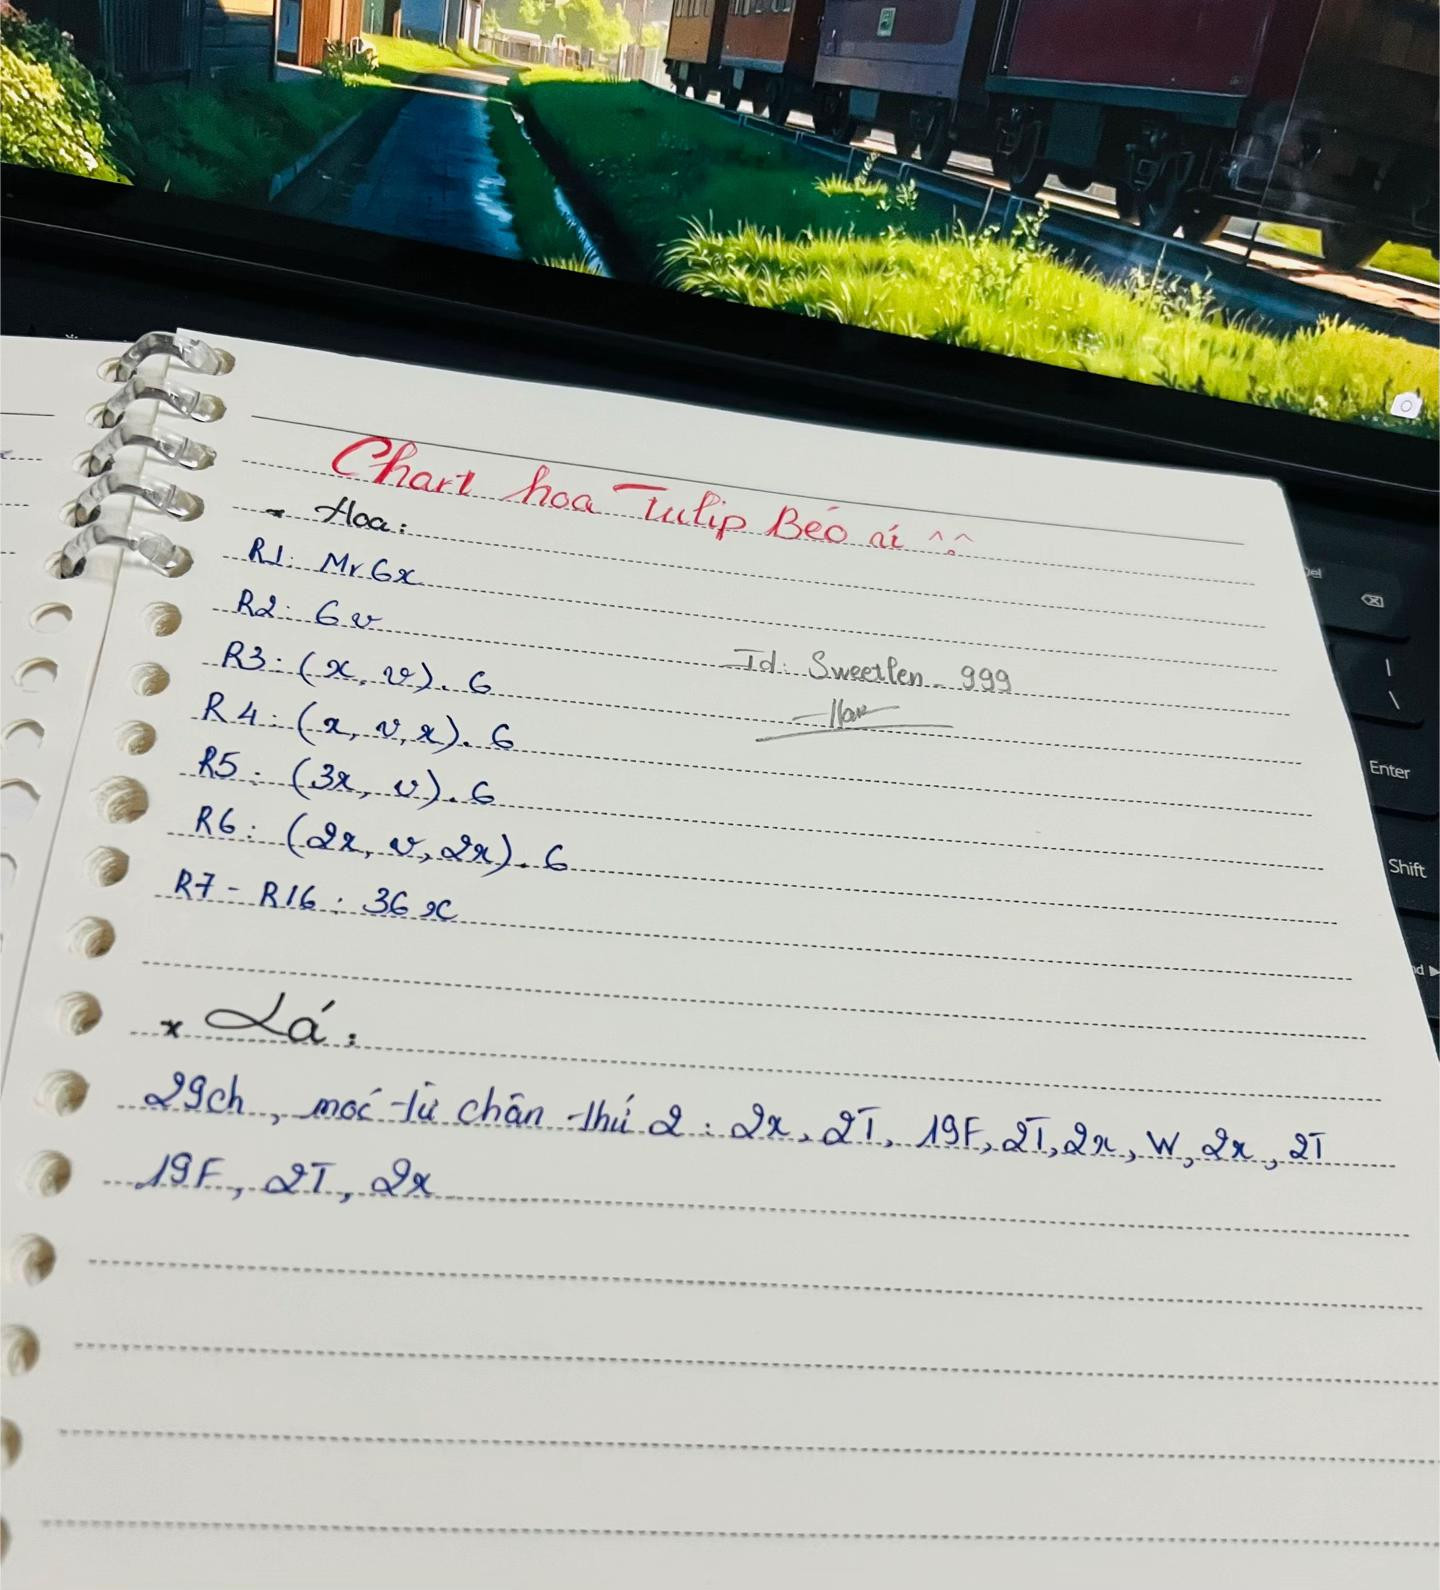 Chart hoa Tulip Béo ú ^^
* Hoa:
R1: Mr 6x
R2: 6v
R3: (x, v). 6
Id: Sweetlen_999
R4: (x, v, x). 6
R5: (3x, v). 6
R6: (2x, v, 2x). 6
R7 - R16: 36x
* Lá:
29ch, móc từ chân thứ 2: 2x, 2T, 19F, 2T, 2x, W, 2x, 2T
19F, 2T, 2x
Enter
Shift